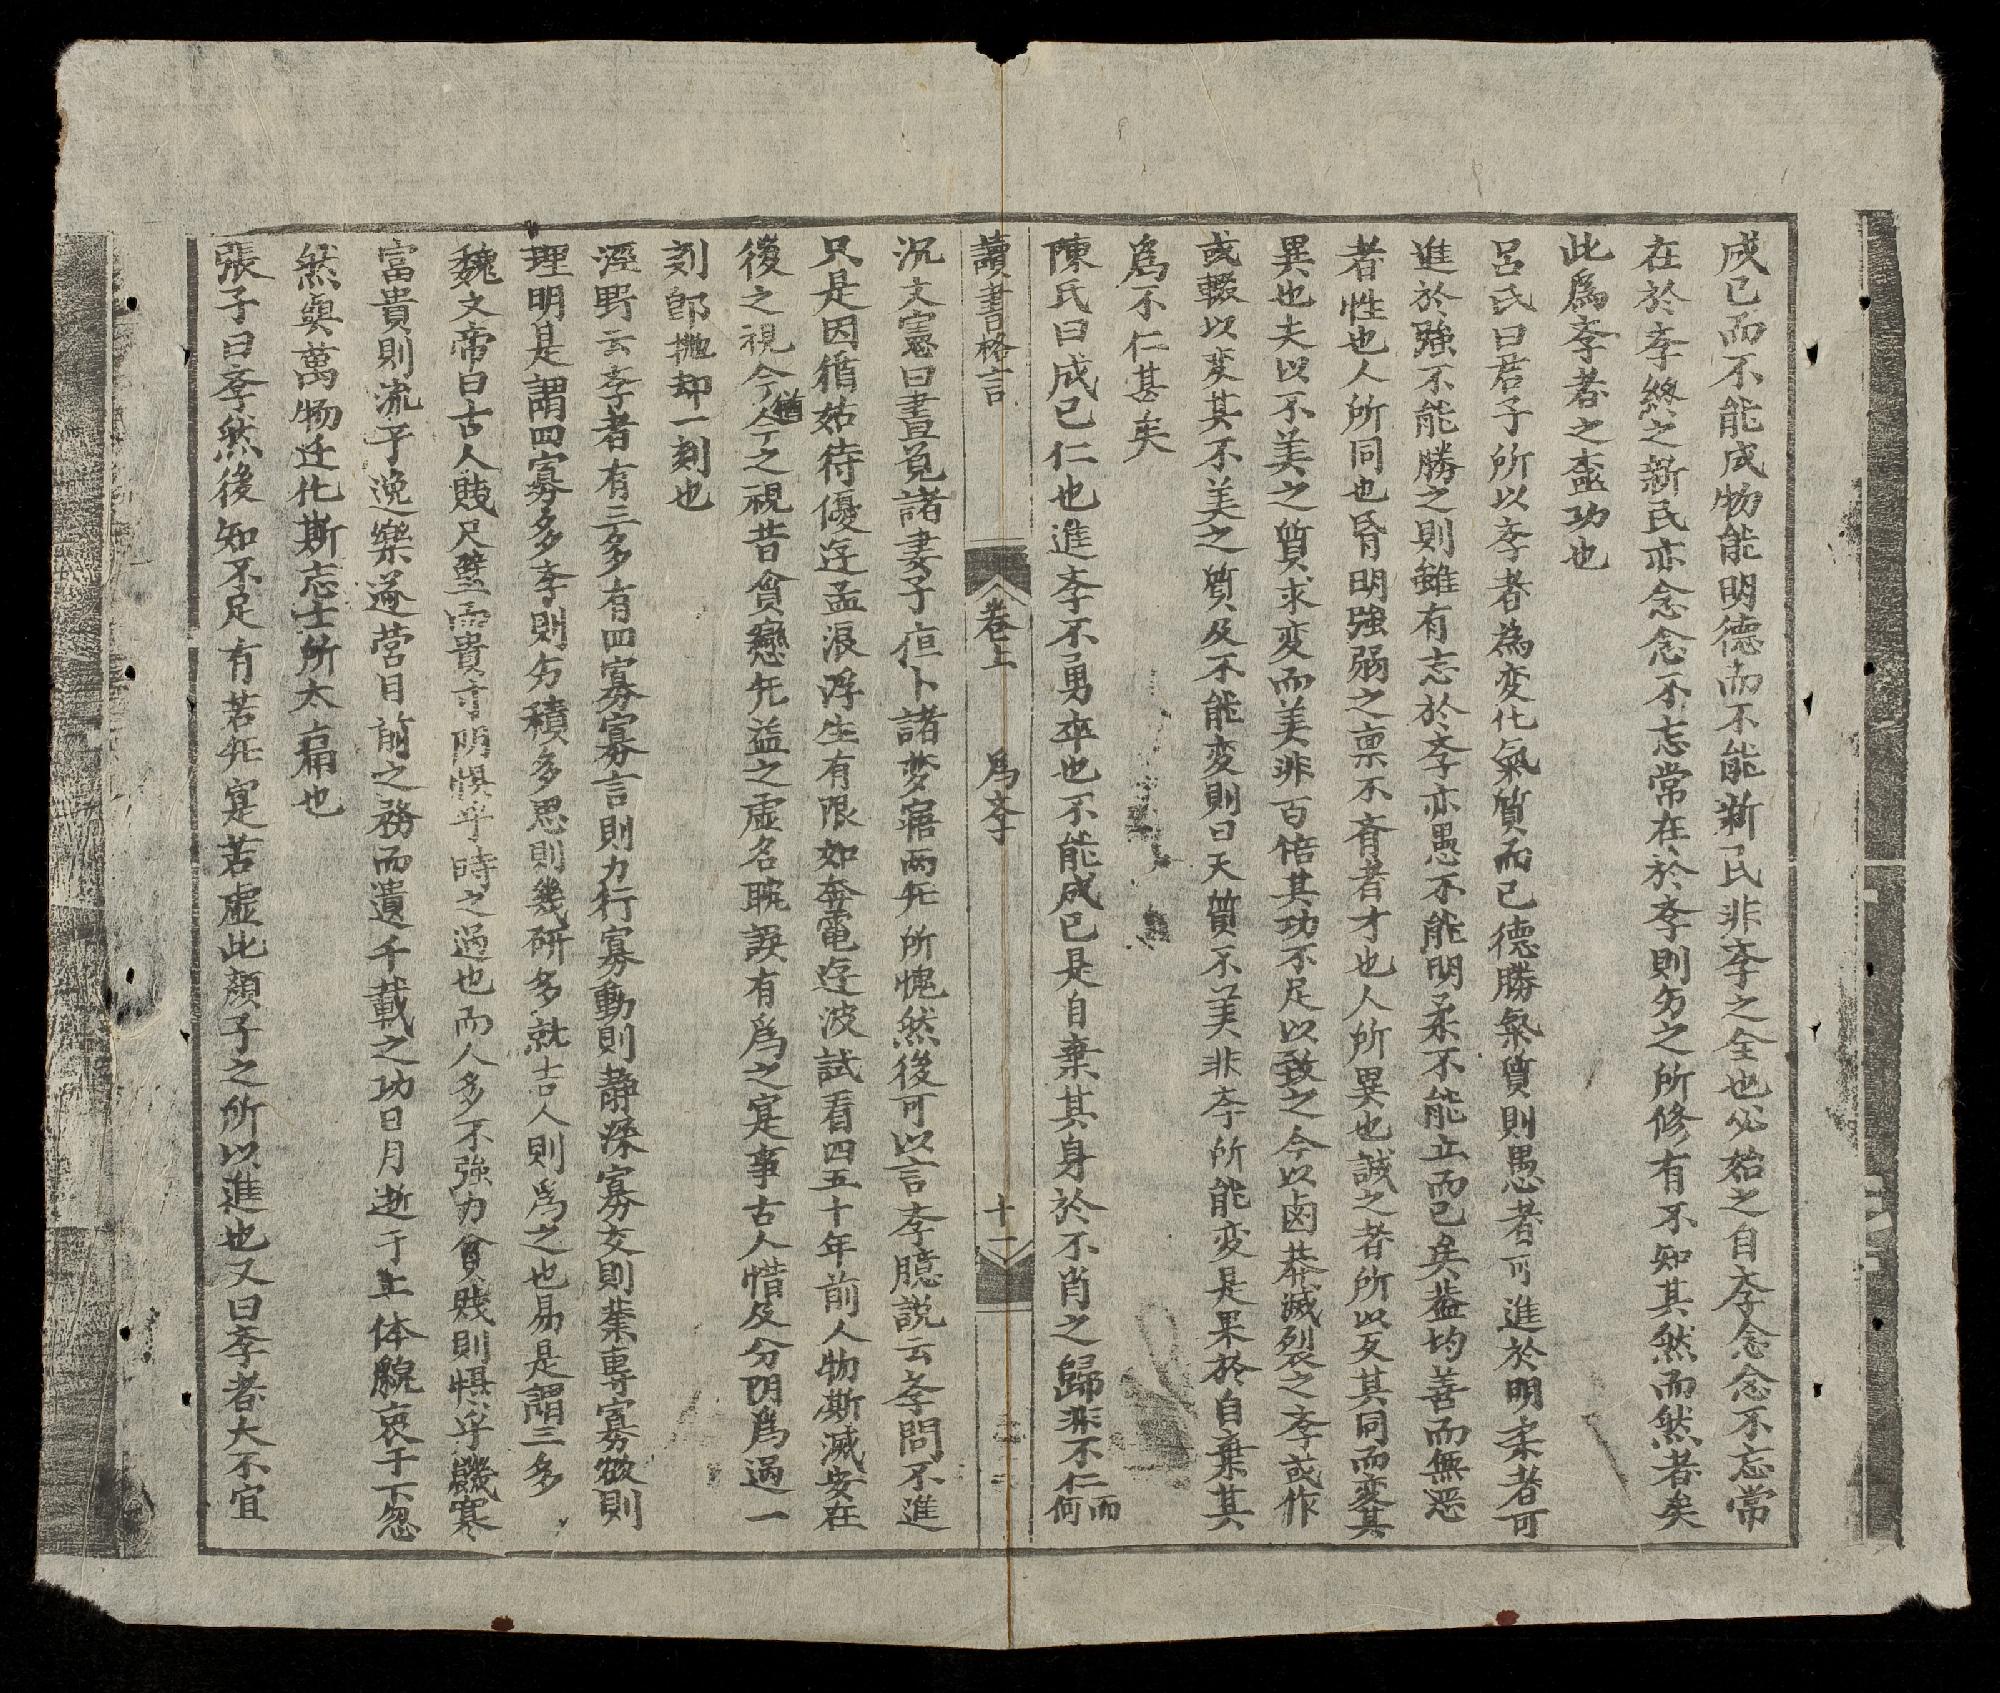 成已而不能成物能明德而不能新民非斈之全也必始之自斈念念不忘常
在於斈終之新民亦念念不忘常在於斈則身之所修有不知其然而然者矣
此為斈者之盡功也
呂氏曰君子所以斈者為変化氣質而已德勝氣質則愚者可進於明柔者可
進於強不能勝之則雖有志於斈亦愚不能明柔不能立而已矣葢均善而無恶
者性也人所同也昏明強弱之禀不齐者才也人所異也誠之者所以反其同而変其
異也夫以不美之質求変而美非百倍其功不足以致之今以鹵莽滅裂之斈或作
或輟以変其不美之質及不能変則曰天質不美非斈所能変是果於自棄其
為不仁甚矣
陳氏曰成已仁也進斈不勇卒也不能成已是自棄其身於不肖之歸非不仁而何
讀書格言 卷上 為斈 十一
沉文憲曰晝覓諸妻子疸卜諸梦寤兩旡所愧然後可以言斈臆説云斈問不進
只是因循姑待優逰孟浪浮生有限如奔電逰波試看四五十年前人物澌滅安在
後之視今猶今之視昔貪戀旡益之虚名眈誤有為之寔事古人惜及分阴為過一
刻郎抛却一刻也
涇野云斈者有三多有四寡寡言則力行寡動則静深寡交則業専寡欲則
理明是謂四寡多斈則身積多思則幾研多就吉人則為之也易是謂三多
魏文帝曰古人賎尺璧而貴寸阴惧乎時之過也而人多不強力貧賎則惧乎饑寒
富貴則流于逸樂遂営目前之務而遺千載之功日月逝于上体貌衰于下忽
然與萬物迁化斯志士所太痛也
張子曰斈然後知不足有若旡寔若虚此顔子之所以進也又曰斈者大不宜